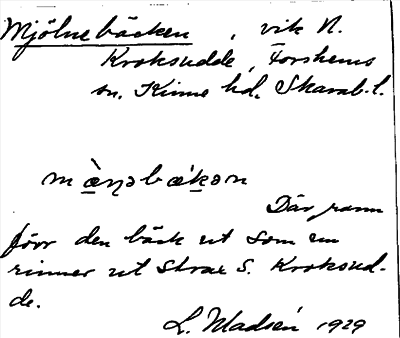 Mjölnebäcken, vik N.
Kroksudde, Forshems
sn. Kinne hd. Skarab. l.
mæ̀ṇəbækən
Där rann
förr den bäck ut som nu
rinner ut strax S. Kroksud-
de.
L. Madsén 1929